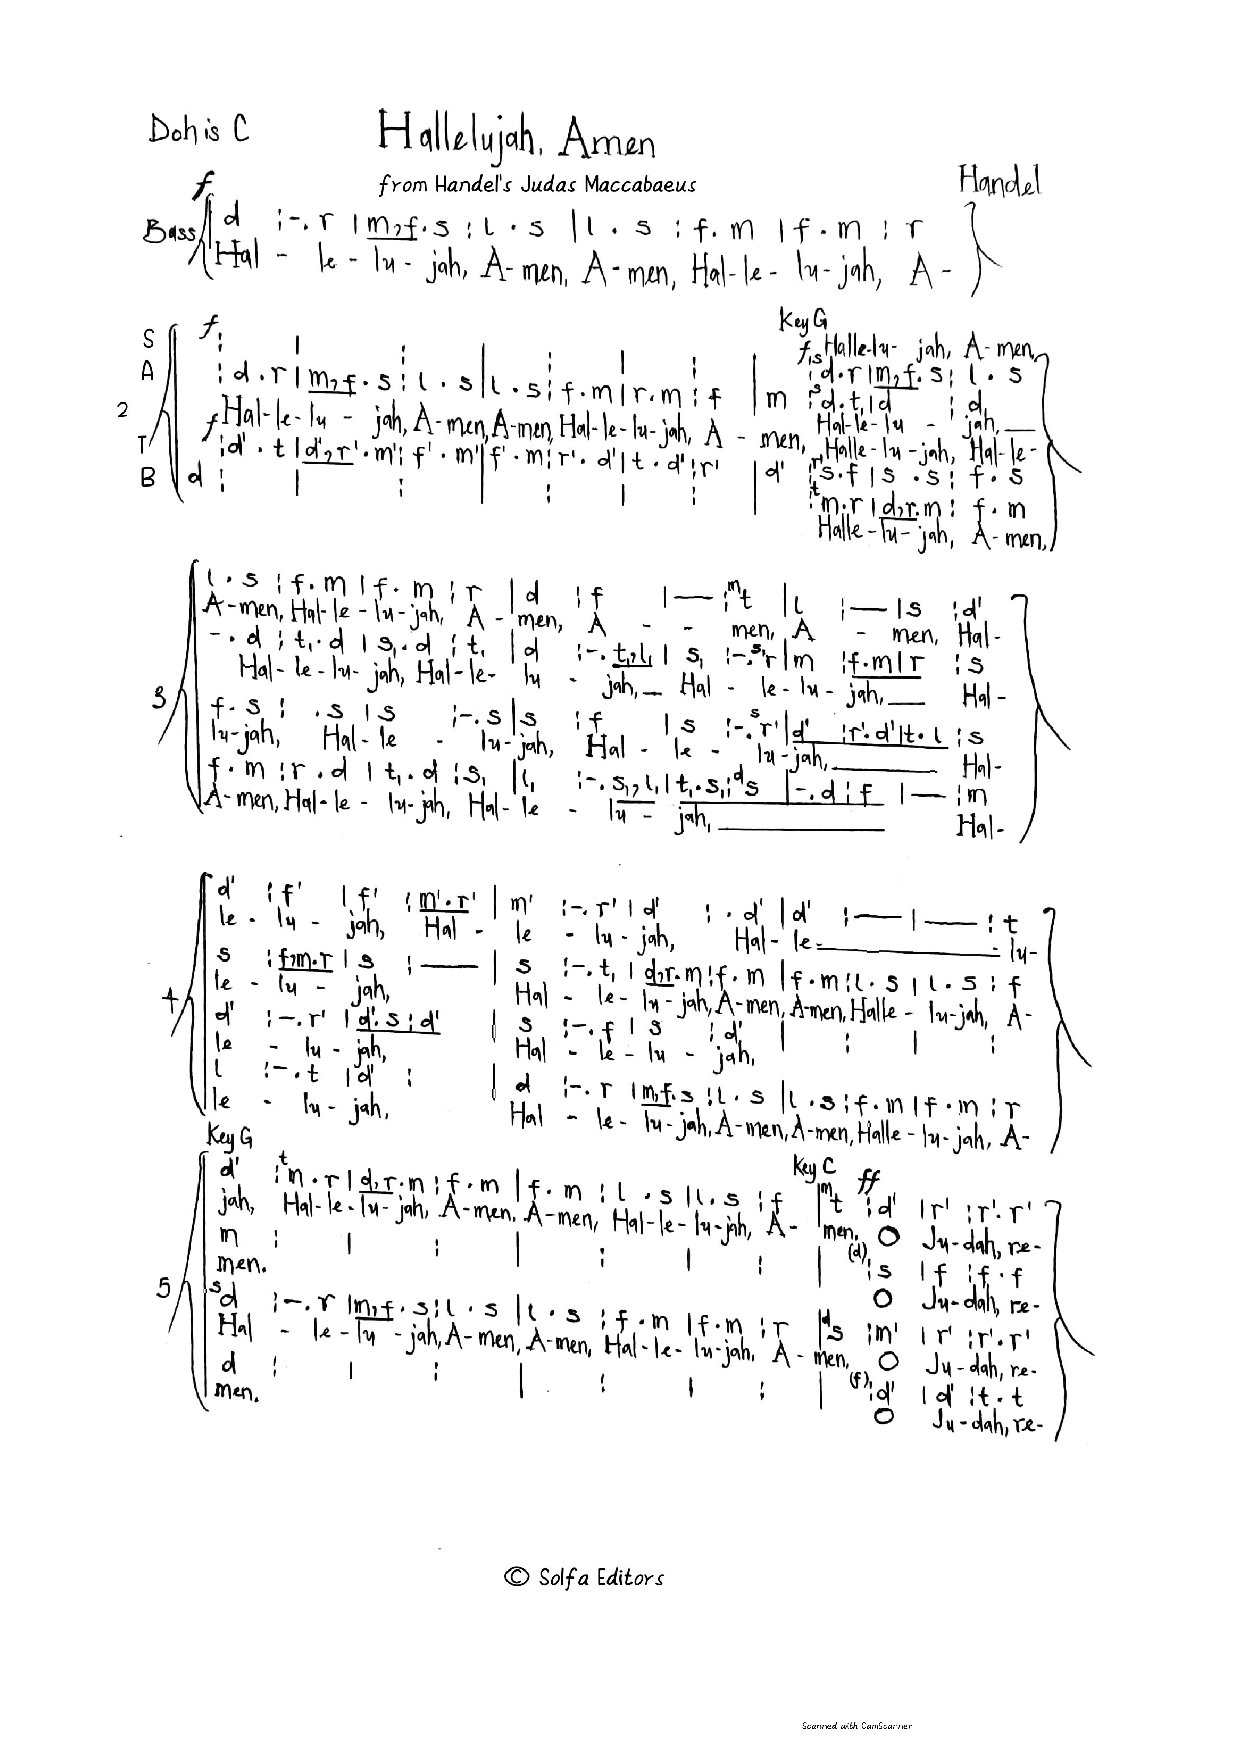 Doh is C
Hallelujah, Amen
from Handel's Judas Maccabaeus
Handel
f
Bass d :-. r | m,f.s : l . s | l . s : f. m | f . m : r
Hal - le - lu - jah, A- men, A - men, Hal-le- lu- jah, A -
Key G
S f :
f,s Halle-lu- jah, A-men,
A : d . r | m,f . s : l . s | l . s : f . m | r . m : f | m
:d.r | m,f.s : l . s
2 Hal-le-lu - jah, A-men, A-men, Hal-le-lu-jah, A - men,
s d.t, | d : d
Hal-le-lu - jah,
T f : d' . t | d',r'. m' : f' . m' | f' . m : r'. d' | t . d' : r' | d'
Halle-lu-jah, Hal-le-
r s.f | s .s : f . s
B d :
t m.r | d,r.m : f . m
Halle-lu-jah, A-men,
l . s : f. m | f . m : r | d : f | — : m t | l : — | s : d'
A-men, Hal-le-lu-jah, A - men, A - - men, A - men, Hal-
-. d : t, . d | s, . d : t, | d :-. t,,l, | s, :-. s r | m : f.m | r : s
Hal-le-lu-jah, Hal-le- lu - jah, Hal - le-lu-jah, Hal-
3
f . s : . s | s :-. s | s : f | s :-. s r' | d' : r'. d' | t . l : s
lu-jah, Hal-le - lu-jah, Hal - le - lu-jah, Hal-
f . m : r . d | t, . d : s, | l, :-. s,,l, | t, . s, : d s | -. d : f | — : m
A-men, Hal-le- lu-jah, Hal-le - lu - jah, Hal-
d' : f' | f' : m'. r' | m' :-. r' | d' : . d' | d' : — | — : t
le - lu - jah, Hal - le - lu - jah, Hal-le - lu-
s : f,m.r | s : — | s :-. t, | d,r.m : f . m | f . m : l . s | l . s : f
le - lu - jah, Hal - le - lu - jah, A-men, A-men, Halle - lu-jah, A-
4
d' :-. r' | d'. s : d' | s :-. f | s : d' | : | :
le - lu - jah, Hal - le - lu - jah,
l :-. t | d' : | d :-. r | m,f.s : l . s | l . s : f . m | f . m : r
le - lu - jah, Hal - le - lu-jah, A-men, A-men, Halle - lu-jah, A-
Key G
Key C
ff
d' : t m . r | d,r.m : f . m | f . m : l . s | l . s : f | m t : d' | r' : r'. r'
jah, Hal-le-lu-jah, A-men, A-men, Hal-le-lu-jah, A- men, O Ju-dah, re-
m : | : | : | : | (d) : s | f : f . f
men. O Ju-dah, re-
5
s d :-. r | m,f . s : l . s | l . s : f . m | f . m : r | d s : m' | r' : r'. r'
Hal - le - lu - jah, A-men, A-men, Hal-le- lu-jah, A - men, O Ju-dah, re-
d : | : | : | : | (f) : d' | d' : t . t
men. O Ju-dah, re-
© Solfa Editors
Scanned with CamScanner